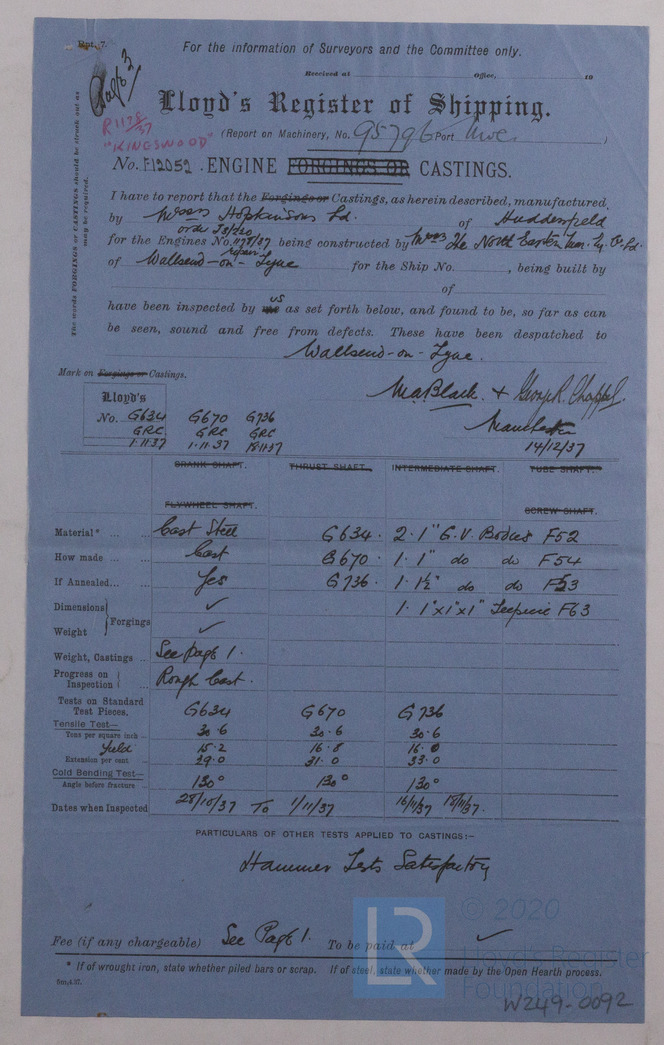 Rpt. 7.
Page 3
For the information of Surveyors and the Committee only.
Received at Office, 19
Lloyd's Register of Shipping.
R1178/37
"KINGSWOOD"
(Report on Machinery, No. 95796 Port Nwc. )
No. F12052. ENGINE FORGINGS OR CASTINGS.
The words FORGINGS or CASTINGS should be struck out as
may be required.
I have to report that the Forgings or Castings, as herein described, manufactured,
by Messrs Hopkinsons Ld. of Huddersfield
for the Engines No. 1178/37 being constructed by Messrs The North Eastern Mar. Eng. Co. Ld.
repair
of Wallsend-on-Tyne for the Ship No. , being built by
of
have been inspected by me us as set forth below, and found to be, so far as can
be seen, sound and free from defects. These have been despatched to
Wallsend-on-Tyne.
Mark on Forgings or Castings.
M.A. Black. + George R. Chappel.
Manchester
14/12/37
Lloyd's
No. G634 G670 G736
GRC. GRC GRC
1.11.37 1.11.37 18.11.37
CRANK SHAFT. THRUST SHAFT. INTERMEDIATE SHAFT. TUBE SHAFT.
FLYWHEEL SHAFT. SCREW SHAFT.
Material* ... Cast Steel G634. 2. 1" G.V. Bodies F52
How made ... Cast G670. 1. 1" do do F54
If Annealed... Yes G736. 1. 1½" do do F53
Dimensions } Forgings ✓ 1. 1"x1"x1" Teepiece F63
Weight ✓
Weight, Castings .. See page 1.
Progress on Inspection ... Rough Cast.
Tests on Standard
Test Pieces. G634 G670 G736
Tensile Test—
Tons per square inch .. 30.6 30.6 30.6
Yield 15.2 16.8 16.0
Extension per cent .. 29.0 31.0 33.0
Cold Bending Test—
Angle before fracture .. 130° 130° 130°
Dates when Inspected 28/10/37 To 1/11/37 16/11/37 18/11/37.
PARTICULARS OF OTHER TESTS APPLIED TO CASTINGS:—
Hammer Tests Satisfactory
Fee (if any chargeable) See Page 1. To be paid at ✓
* If of wrought iron, state whether piled bars or scrap. If of steel, state whether made by the Open Hearth process.
LR
© 2020
Lloyd's Register
Foundation
W249-0092